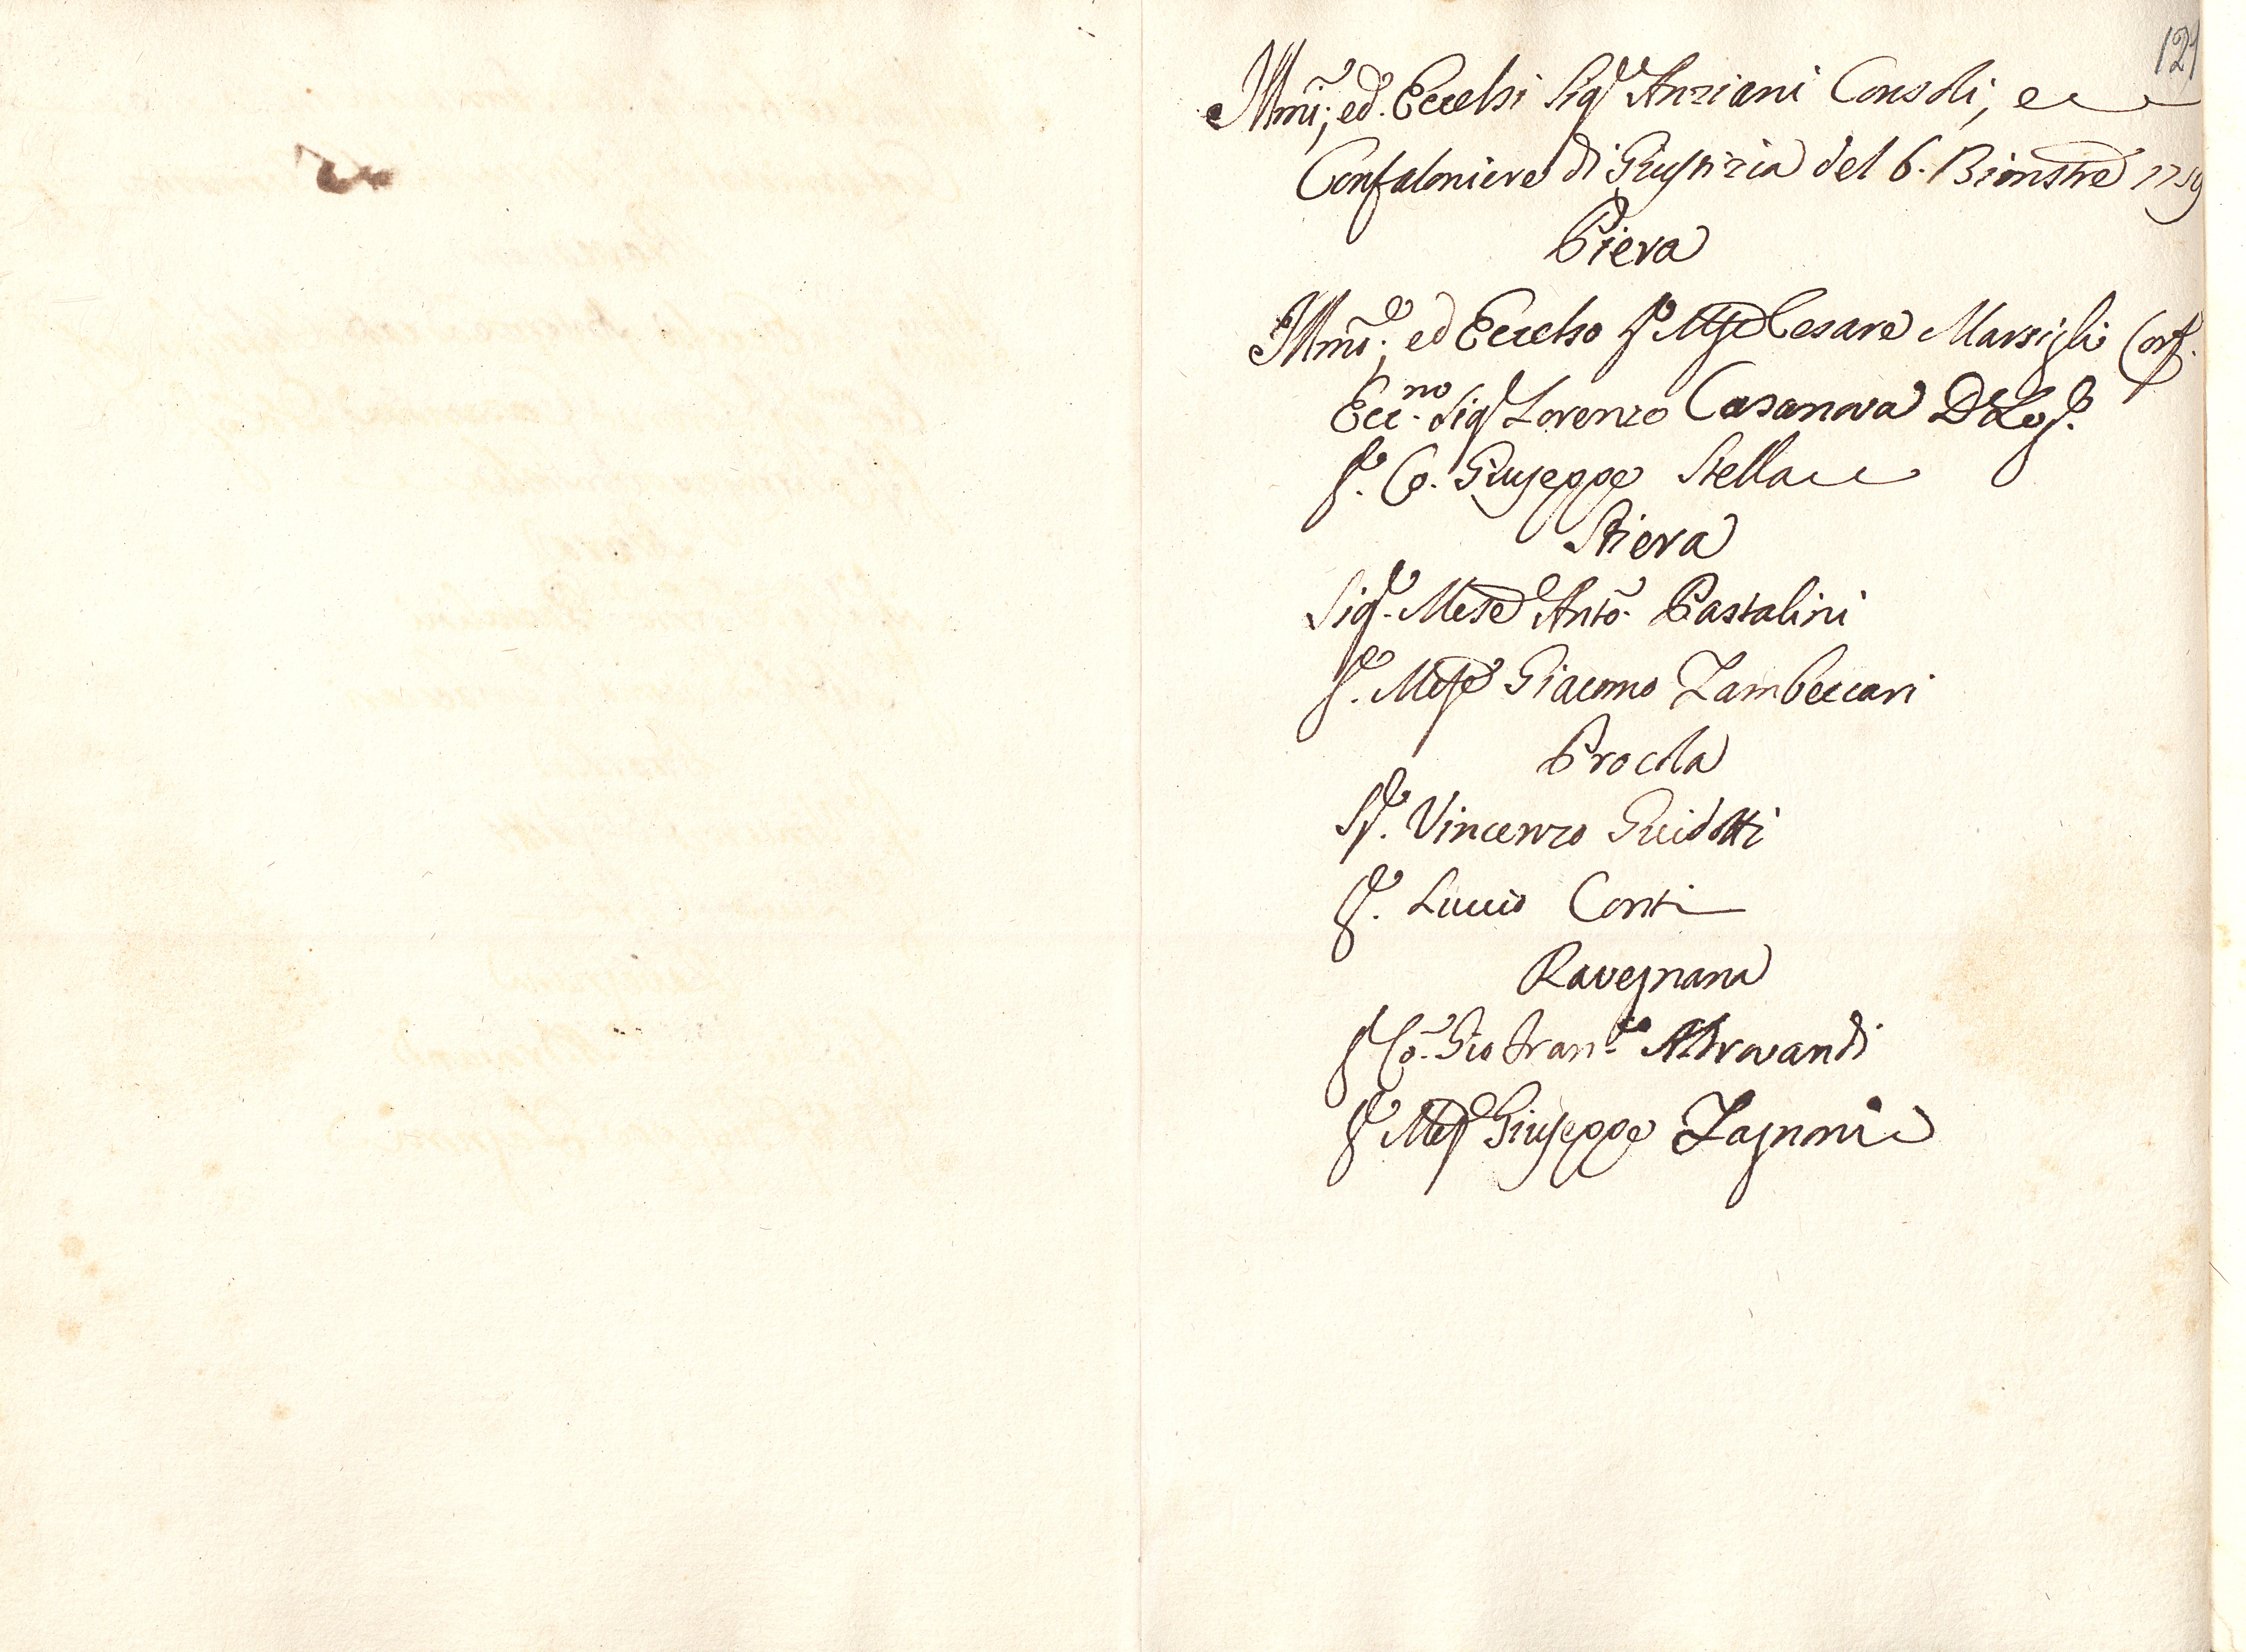 121
Illmi; ed. Eccelsi Sigri Anziani Consoli, e
Confaloniere di Giustizia del 6. Bimestre 1759
Piera
Illmo; ed Eccelso Sr Mse Cesare Marsigli Conf.
Eccmo. Sigr Lorenzo Casanova D Leg.
Sr. Co. Giuseppe Stella
Stiera
Sigr. Mse Anto. Pastalini
Sr. Mse Giacomo Zambeccari
Procola
Sr. Vincenzo Guidotti
Sr. Luccio Conti
Ravegnana
Sr Co. Gio Franco. Aldrovandi
Sr Mse Giuseppe Zagnoni